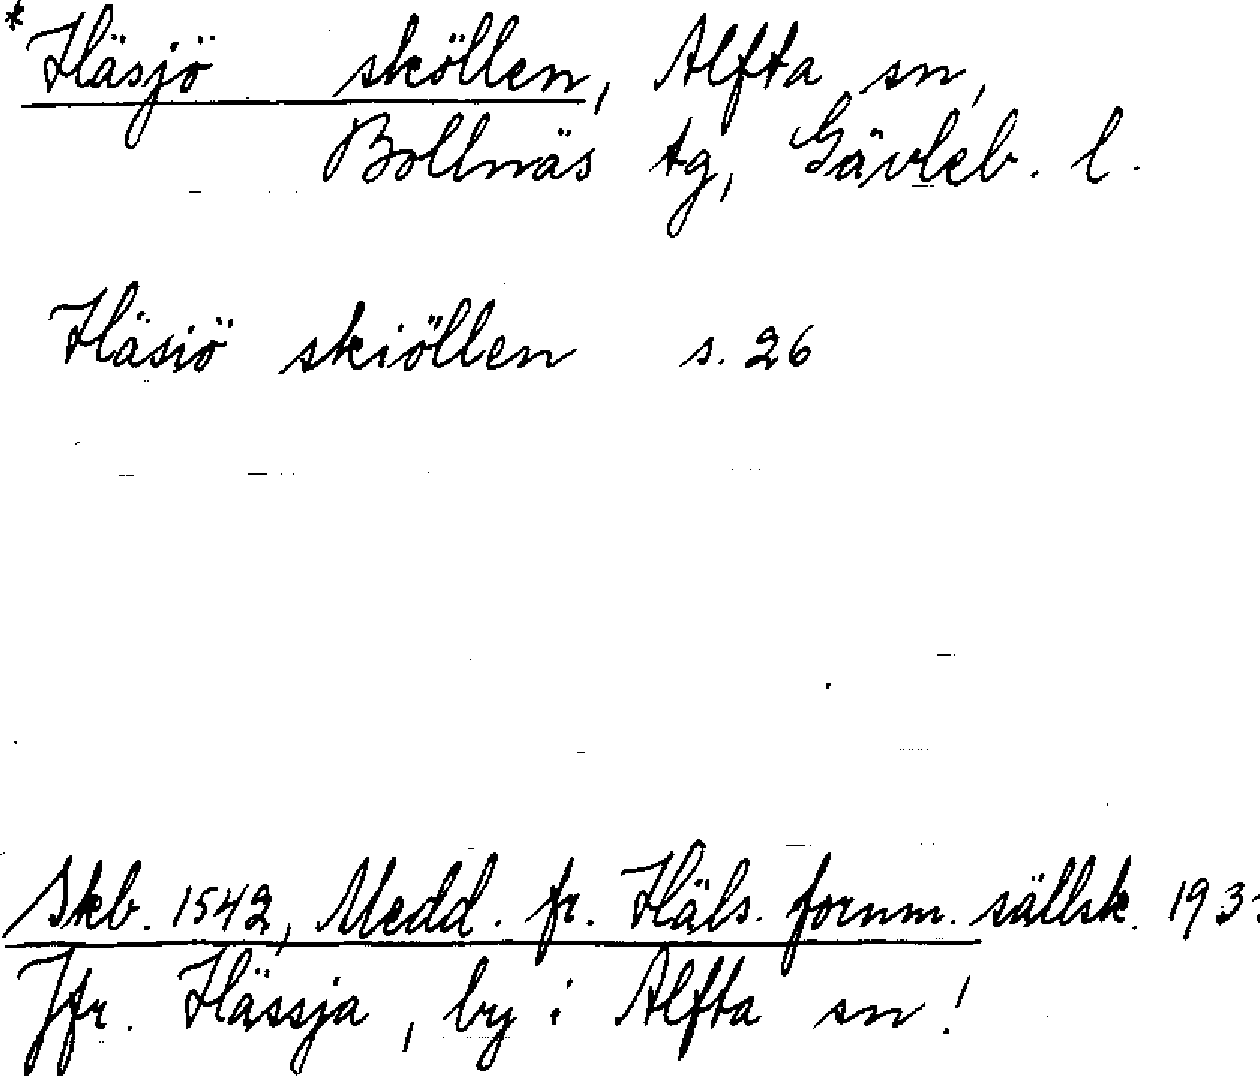 *Häsjö sköllen, Alfta sn,
Bollnäs tg, Gävleb. l.
Häsiö skiöllen s. 26
Skb. 1542, Medd. fr. Häls. fornm. sällsk.
Jfr. Hässja, by i Alfta sn!